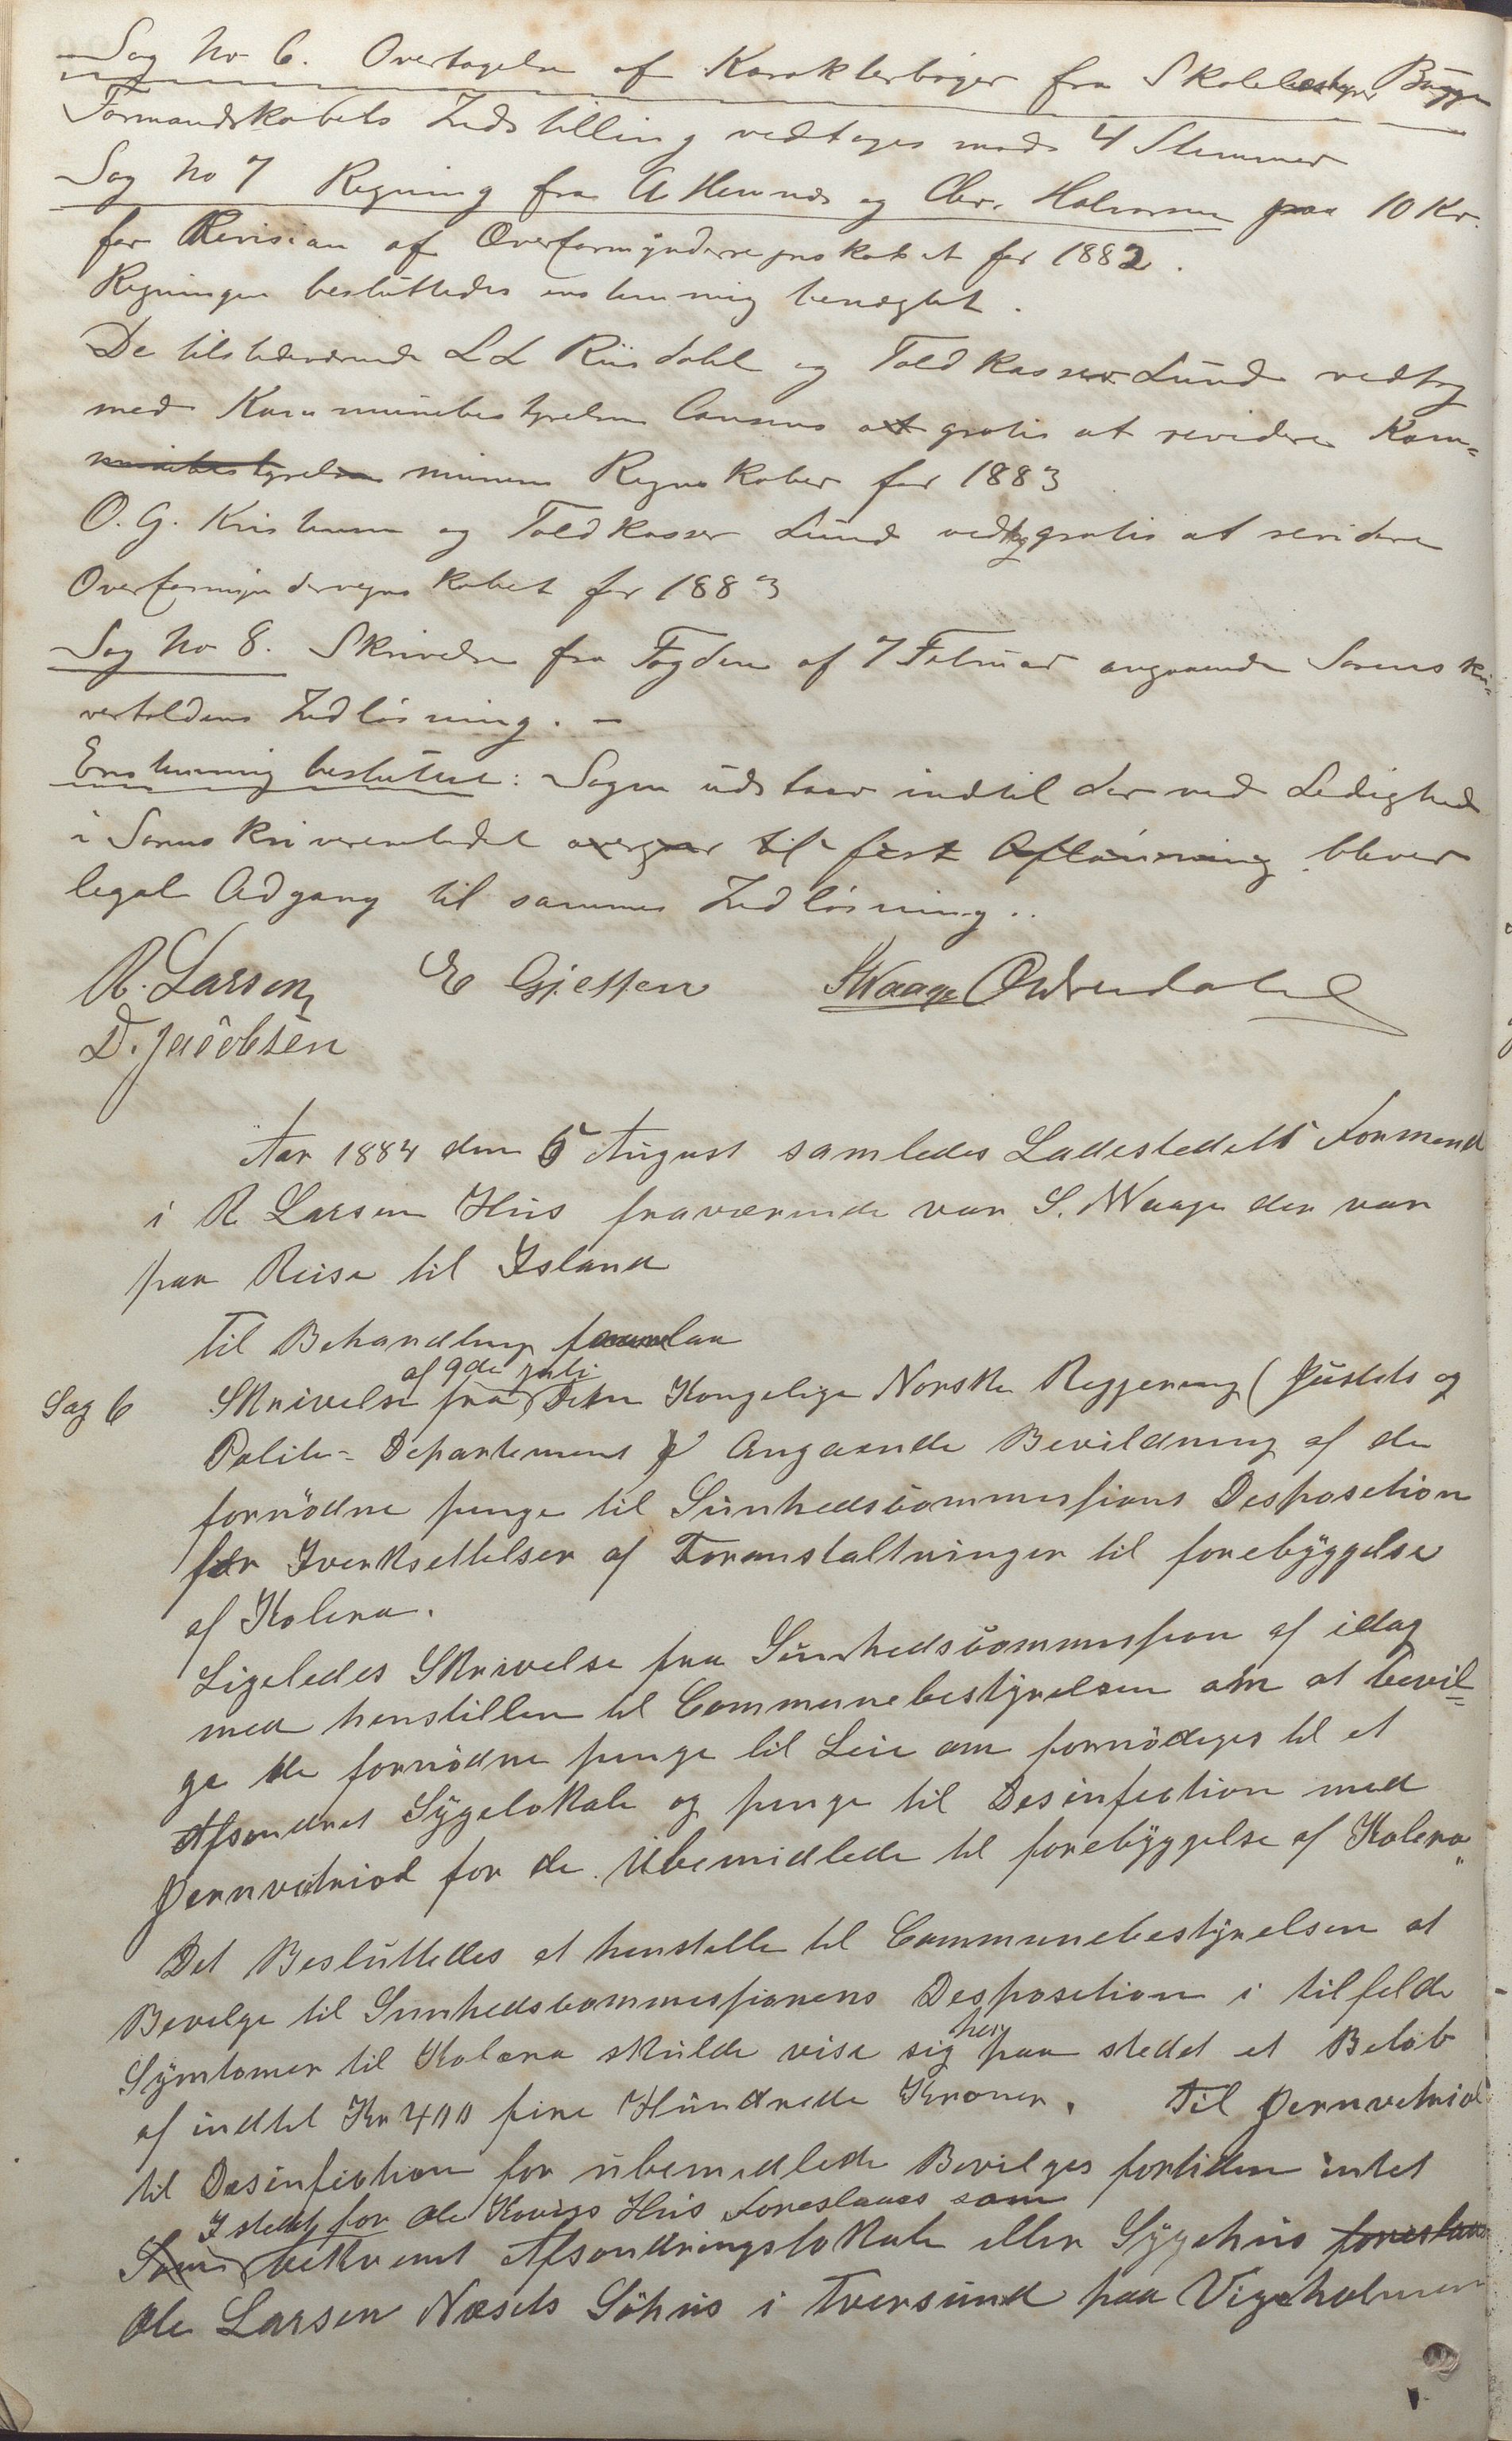 Sag No 6. Overtagelse af Karakterbøger fra Skolebestyrer Bügge
Formandskabets Indstilling vedtages mods 4 Stemmer
Sag No 7 Regning fra A Hennes og Chr. Halvorsen paa 10 Kr.
for Revision af Overformynderregnskabet for 1882.
Regningen besluttedes enstemmig benegtet.
De tilstedeværende L L Riisdahl og Toldkasser Lund vedtog
med Kommunebestyrelsens Consens at gratis at revidere Kom=
munebestyrelsen munens Regnskaber for 1883
O. G. Kristensen og Toldkasser Lund vedtog gratis at revidere
Overformynderregnskabet for 1883
Sag No 8. Skrivelse fra Fogden af 7 Februar angaaende Sorenskri=
vertoldens Indløsning. —
Enstemmig besluttet: Sagen udstaar indtil der ved Ledighed
i Sorenskriverembedet overgaar til fast Aflønning bliver
legal Adgang til sammes Indløsning..
R. Larsen E Gjessen SWaage
D. Jacobsen
Aar 1884 den 5 August samledes Ladestedets Formend
i R Larsen Hus fraværende var S. Waage der var
paa Reise til Island
Til Behandling forelaa
af 9de juli
Sag 6 Skrivelse fra Den Kongelige Norske Regjering (Justits og
Politi= Departement) Angaaende Bevildning af de
fornødne penge til Sunhedscommissions Desposetion
for Iverksettelser af Foranstaltninger til forebyggelse
af Kolera.
Ligeledes Skrivelse fra Sunhedscommission af idag
med henstillen til Communebestyrelsen om at bevil=
ge de fornødne penge til Leie om fornødiges til et
Afsondret Sygelokale og penge til Desinfection med
Jernvitriol for de Ubemidlede til forebyggelse af Kolera"
Det Besluttedes at henstille til Communebestyrelsen at
Bevilge til Sunhedscommissionens Desposetion i tilfelde
her
Symtomer til Kolera skulde vise sig paa stedet et Beløb
af indtil Kr 400 fire Hundrede Kroner. Til Jernvetriol
til Desinfection for ubemedlede Bevilges fortiden intet
I stedet for Ole Kovigs Hus Foreslaaes som
Som bekvemt Afsondringslokale eller Sygehus foreslaaes
Ole Larsen Næsets Söhus i Tversund paa Vigeholmen